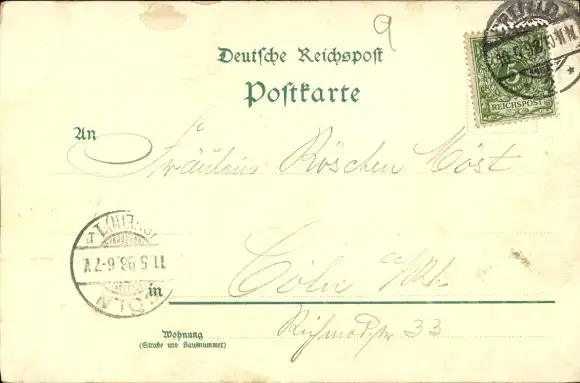 9
Deutsche Reichspost
Postkarte
5
REICHSPOST
An
Fräulein Röschen Höst
Cöln a/Rh.
in
KÖLN
11.5.98.6-7V.
Wohnung
(Straße und Hausnummer)
33